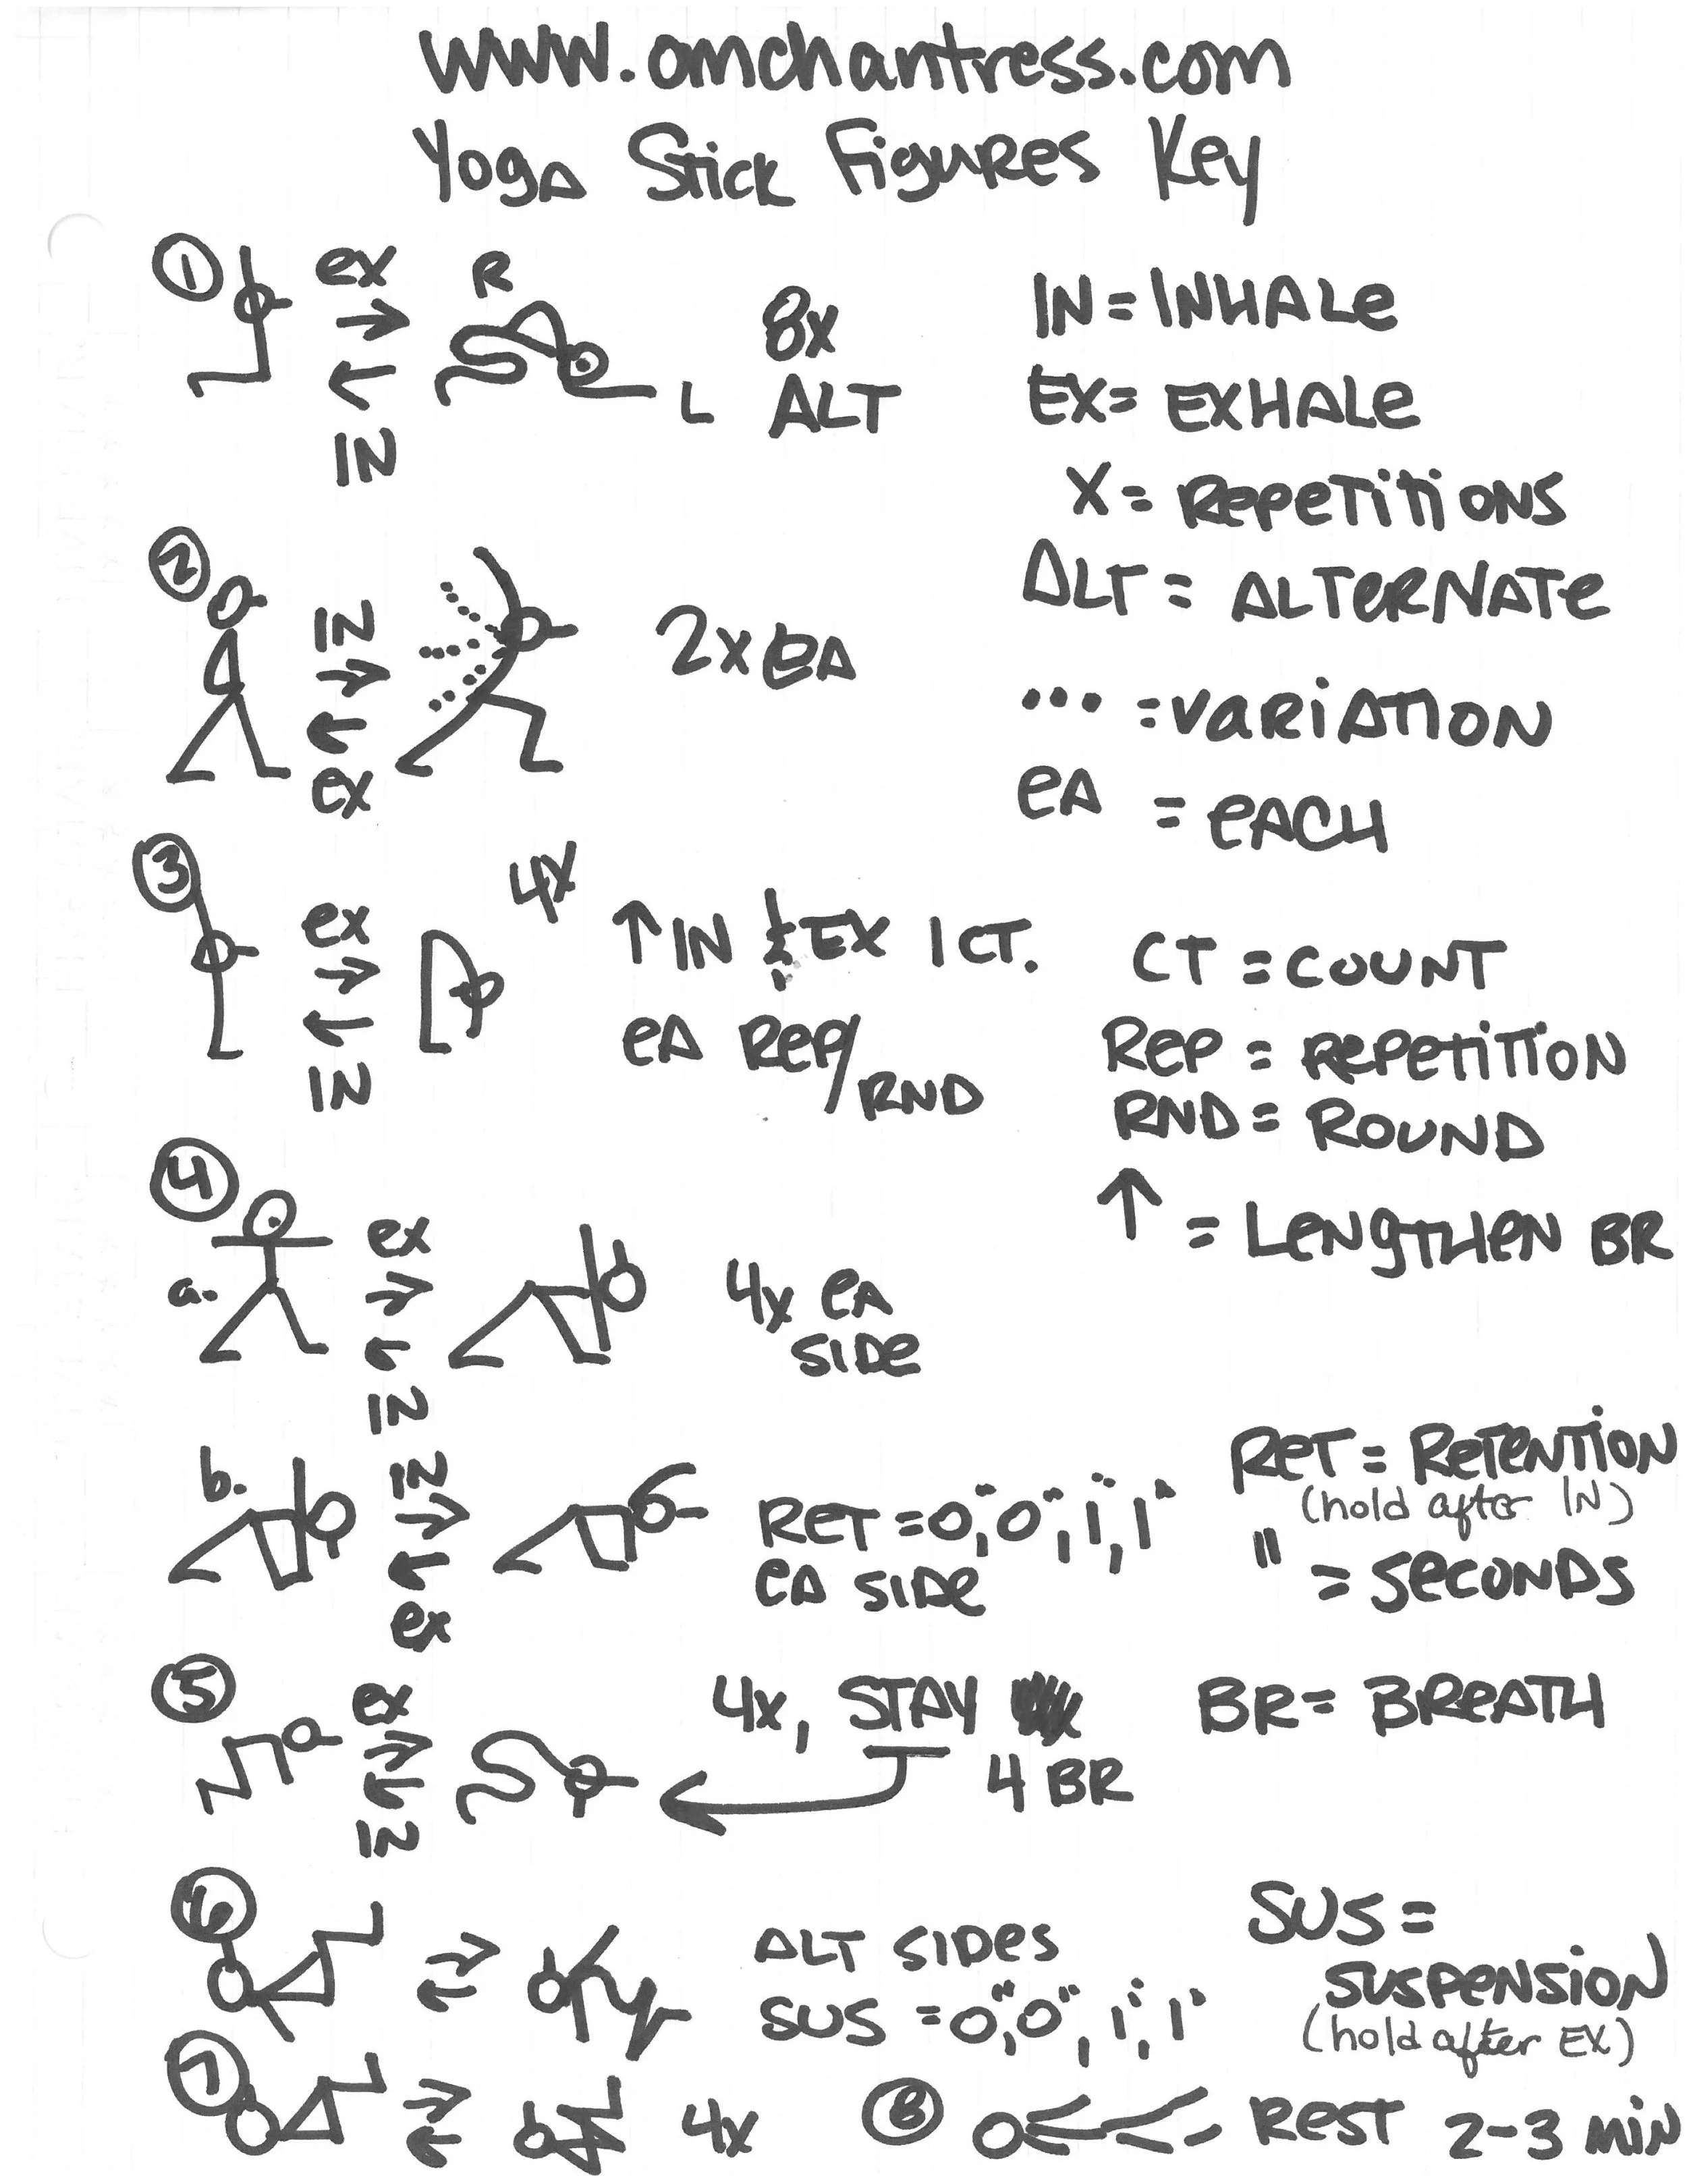 www.omchantress.com
Yoga Stick Figures Key
① ex R 8x
L ALT
IN
IN = INHALE
EX = EXHALE
X = REPETITIONS
ALT = ALTERNATE
② IN 2x EA
ex
... = VARIATION
EA = EACH
③ ex 4x ↑ IN & EX 1 CT.
IN EA REP/RND
CT = COUNT
REP = REPETITION
RND = ROUND
↑ = LENGTHEN BR
④
a. ex 4x EA
SIDE
IN
b. IN RET = 0", 0", 1", 1"
ex EA SIDE
RET = RETENTION
(hold after IN)
" = SECONDS
⑤ ex 4x, STAY
IN 4 BR
BR = BREATH
⑥ ALT SIDES
SUS = 0", 0", 1", 1"
SUS =
SUSPENSION
(hold after EX)
⑦ 4x ⑧ REST 2-3 MIN